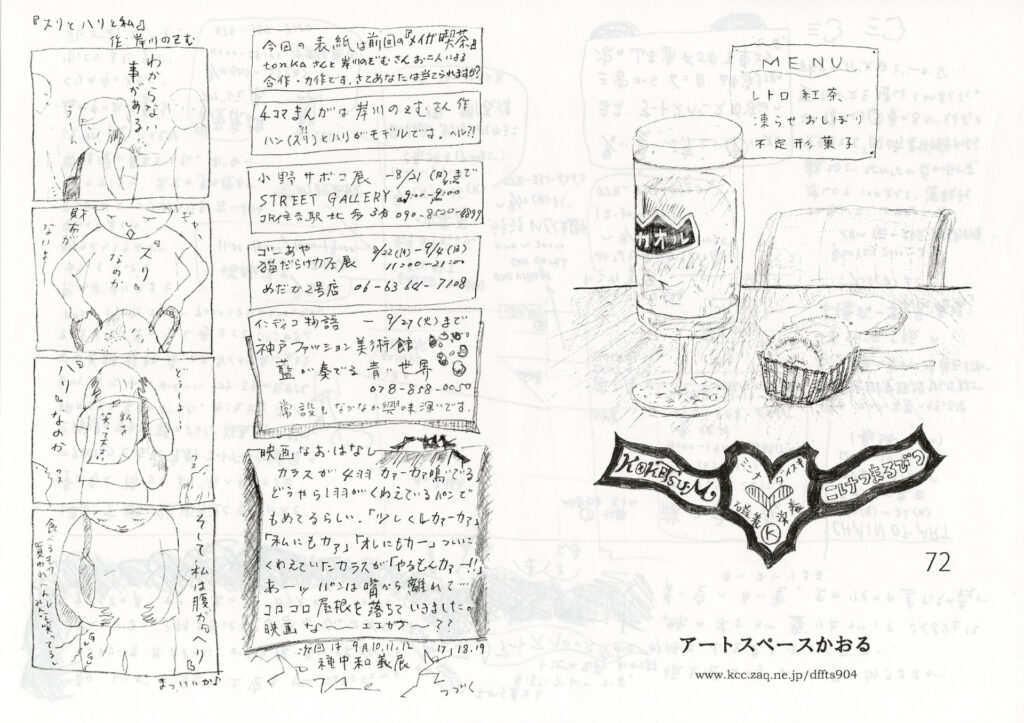 『スリとハリと私』
作:岸川のぞむ
わからない
事がある
財布が
ないよ
スリ
なのか
ぎゃー
どうしよー
私を
笑う天才
『ハリ』なのか
そして私は腹が『ヘリ』
食べるもの
買われへんし
まっいいか♪
今回の表紙は前回の『メイガ喫茶』
tonkaさんと岸川のぞむさんお二人による
合作・力作です。さてあなたは当てられますか?
4コマまんがは岸川のぞむさん作
ハン(スリ)とハリがモデルです。ヘル?!
小野サボコ展 -8/21(日)まで
STREET GALLERY
JR住吉駅北歩3分 090-8520-8899
ゴーあや 8/22(月)-9/4(日)
猫だらけカフェ展 11:00-21:00
めだか2号店 06-6364-7108
インディゴ物語 ー 9/27(火)まで
神戸ファッション美術館
藍が奏でる青い世界
078-858-0050
常設もなかなか興味深いです。
映画なおはなし
カラスが4羽カーカァ鳴いてる
どうやら1羽がくわえているパンで
もめてるらしい.「少しくれカァーカァ」
「私にもカァ」「オレにもカー」ついに
くわえていたカラスが「やるもんカァー!!」
あーッ パンは嘴から離れて…
コロコロ屋根を落ちていきました。
映画なー エエガナー??
次回は 9月10.11.12 17.18.19
種中和義展
つづく
MENU
レトロ紅茶
凍らせおしぼり
不定形菓子
カオル
KOKETSUM
ミーナ
の
こけつまろびつ
K
72
アートスペースかおる
www.kcc.zaq.ne.jp/dffts904